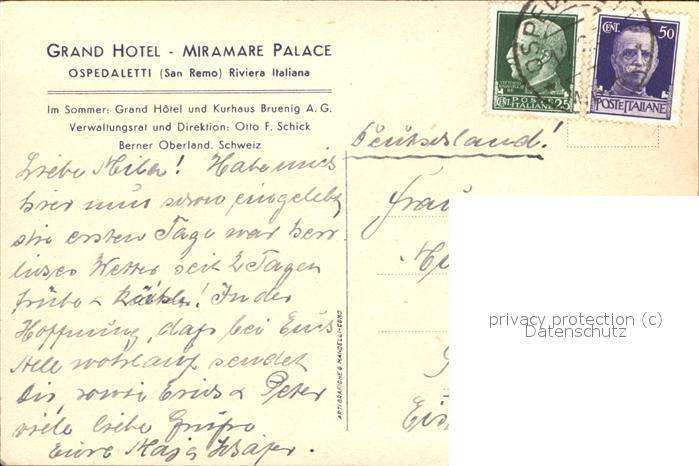 GRAND HOTEL - MIRAMARE PALACE
OSPEDALETTI (San Remo) Riviera Italiana
Im Sommer: Grand Hôtel und Kurhaus Bruenig A.G.
Verwaltungsrat und Direktion: Otto F. Schick
Berner Oberland. Schweiz
Deutschland!
Liebe ! Habe mich
hier nun schon eingelebt
die ersten Tage war herr
liches Wetter seit 2 Tagen
trübe & kühl! In der
Hoffnung, dass bei Euch
alle wohlauf sendet
Dir, sowie Erich & Peter
viele liebe Grüsse
Eure Maja
Frau
ARTI GRAFICHE G. MANDELLI-COMO
CENT. 50
POSTE ITALIANE
POSTE ITALIANE
25
privacy protection (c)
Datenschutz